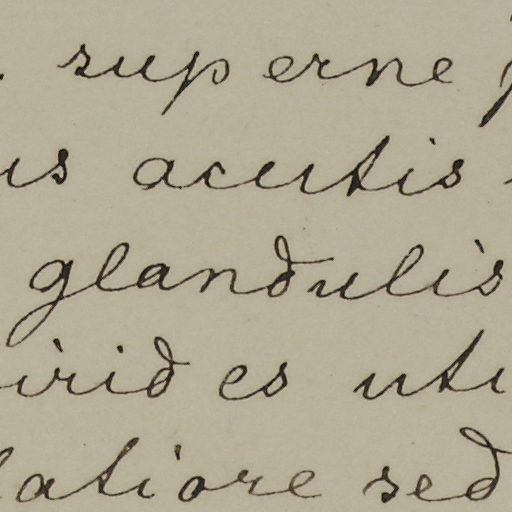 superne
us acutis
glandulis
irides uti
latiore sed